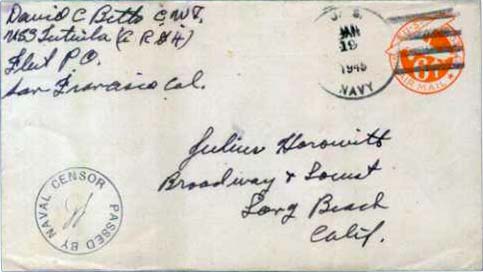 David C Betts CWT
USS Tutuila (ARG4)
Fleet P.O.
San Francisco Cal.
U. S.
JAN
18
1945
NAVY
6¢
AIR MAIL
Julius Horowitz
Broadway & Locust
Long Beach
Calif.
PASSED BY NAVAL CENSOR